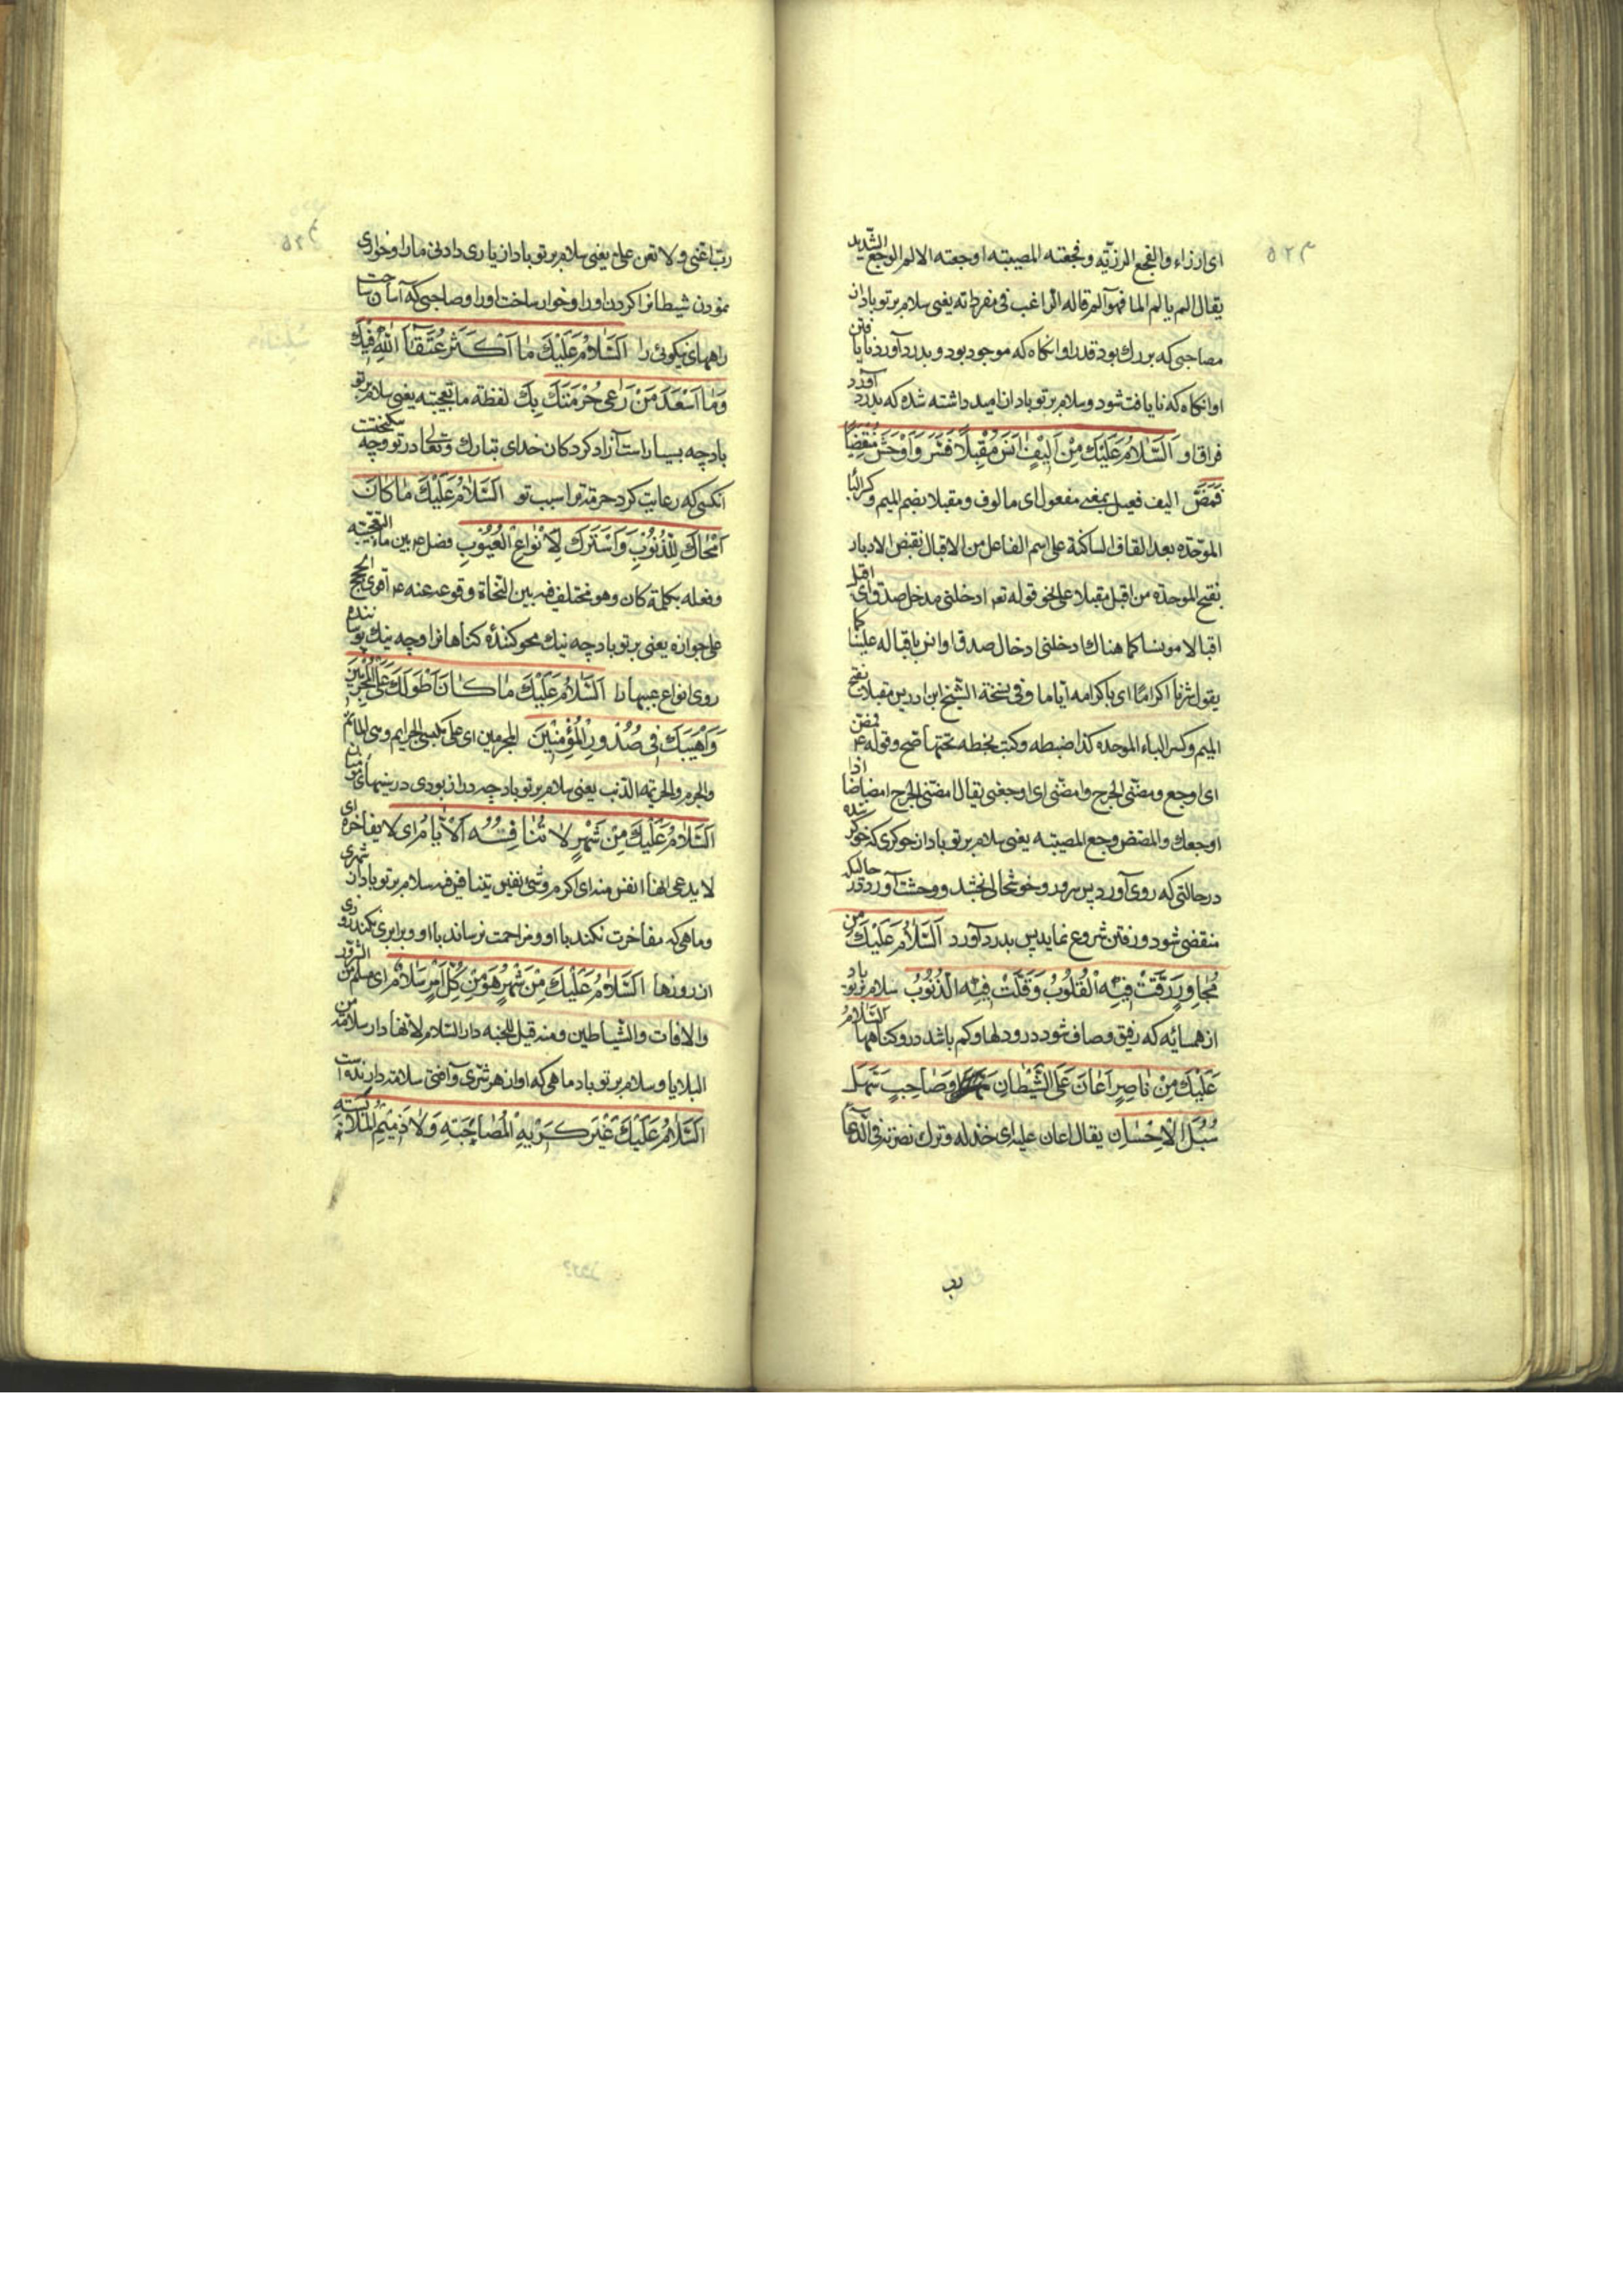 ۵۲۳
ای ارزاء والفجع الرزیّه و فجعته المصیبته اوجعته الالم الوجع الشّدید
یقال الم یالم الما فهو آلم قاله الراغب فی مفرداته یعنی سلام بر تو باد از
مصاحبی که بزرك بود قدر او انکاه که موجود بود و بدرد آورد نایافتن
او انکاه که نایافت شود و سلام بر تو باد از امید داشته شده که بدرد آورد
فراق او اَلسَّلامُ عَلَیْكَ مِنْ اَلیْفٍ اَنَسَ مُقْبِلاً فَسَرَّ وَاَوْحَشَ مُنْقَضِیًا
فَمَضَّ الیف فعیل بمعنی مفعول ای مالوف و مقبلا بضم المیم و کسر البا
الموحّده بعد القاف الساکنة علی اسم الفاعل من الاقبال نقیض الادبار
بفتح الموحده من اقبل مقبلا علی نحو قوله تعم ادخلنی مدخل صدق ای اقبل
اقبالا مونسا کما هناك ادخلنی ادخال صدق او انس باقباله علینا کما
یقول شرنا اکراما ای باکرامه آیاما وفی نسخة الشّیخ ابن ادریس مقبلا بفتح
المیم وکسر الباء الموحده کذا ضبطه وکتب بخطه تحتها صح وقوله ع فمضّ
ای اوجع ومضّنی الجرح وامضّنی ای اوجعنی یقال امضّنی الجرح امضاضا اذا
اوجعك والمضض وجع المصیبته یعنی سلام بر تو باد از خوکری که خوکر شده
درحالتی که روی آورد پس سرور و خوشحالی بخشد و وحشت آورد در حالیکه
منقضی شود و رفتن شروع نماید پس بدرد آورد اَلسَّلامُ عَلَیْكَ مِن
مُجاوِرٍ رَقَّتْ فِیْهِ الْقُلُوبُ وَقَلَّتْ فِیْهِ الذُّنُوْبُ سلام بر تو باد
از همسایه که رفیق و صاف شود در و دلها و کم باشد در و کناهها اَلسَّلامُ
عَلَیْكَ مِنْ ناصِرٍ اَعانَ عَلَی الشَّیْطانِ وَصاحِبٍ سَهَّلَ
سُبُلَ الْاِحْسانِ یقال اعان علیه ای خذله وترك نصرته فی الدّعا
رب
ربّ اعنّی ولا تعن علیّ یعنی سلام بر تو باد از یاری دادنی ما را و خواری
نمودن شیطانرا کردن او را و خوار ساخت او را و صاحبی که آسان ساخت
راههای نیکوئی را اَلسَّلامُ عَلَیْكَ ما اَکْثَرَ عُتَقاۤءَ اللهِ فِیْكَ
وَما اَسْعَدَ مَنْ رَعی حُرْمَتَكَ بِكَ لفظة ما تعجبیّه یعنی سلام بر تو
باد چه بسیار است آزاد کرد کان خدای تبارك و تعالی در تو و چه نیکبخت
انکسی که رعایت کرد حرمت ترا بسبب تو اَلسَّلامُ عَلَیْكَ ما کانَ
اَمْحاكَ لِلذُّنُوْبِ وَاَسْتَرَكَ لِاَنْواعِ الْعُیُوْبِ فصل ع بین ما التعجّبیه
وفعله بکلمة کان وهو مختلف فیه بین النّحاة وقوعه عنه ع اقوی الحجج
علی جوازه یعنی بر تو باد چه نیك محو کننده کناهانرا و چه نیك پوشاننده
روی انواع عیبها را اَلسَّلامُ عَلَیْكَ ما کانَ اَطْوَلَكَ عَلَی الْمُجْرِمِیْنَ
وَاَهْیَبَكَ فِی صُدُورِ الْمُؤْمِنِیْنَ المجرمین ای علی مکتسبی الجرایم
والجرم والجریمة الذّنب یعنی سلام بر تو باد چه دراز بودی در سینهای
اَلسَّلامُ عَلَیْكَ مِنْ شَهْرٍ لا تُنافِسُهُ الْاَیّامُ ای لا یفاخره ای
لا یدعی انها انفس منه ای اکرم و شیء نفیس یتنافس فیه سلام بر تو باد از شهری
و ماهی که مفاخرت نکند با او و مزاحمت نرساند با او و برابری نکند روزی
از روزها اَلسَّلامُ عَلَیْكَ مِنْ شَهْرٍ هُوَ مِنْ کُلِّ اَمْرٍ سَلامٌ ای سلم من الشرور
والافات والشّیاطین ومنه قیل للجنه دار السّلام لانّها دار سلامة من
البلایا و سلام بر تو باد ماهی که او از هر شرّی و آفتی سلامت دارنده است
اَلسَّلامُ عَلَیْكَ غَیْرَ کَرِیْهِ الْمُصاحَبَةِ وَلا ذَمِیْمِ الْمُلابَسَةِ